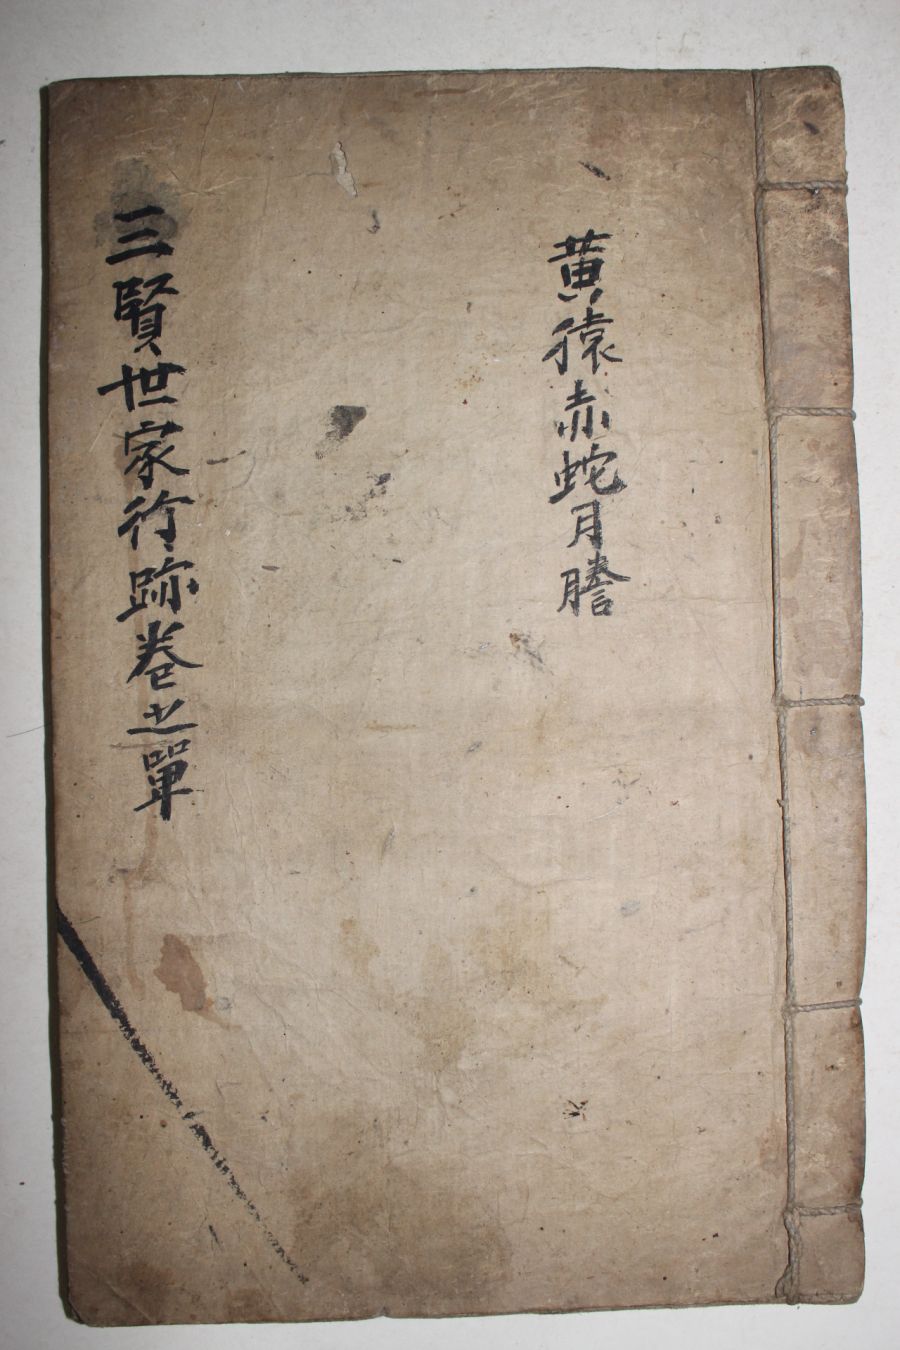 黄猿赤蛇月謄
三賢世家行跡巻之單